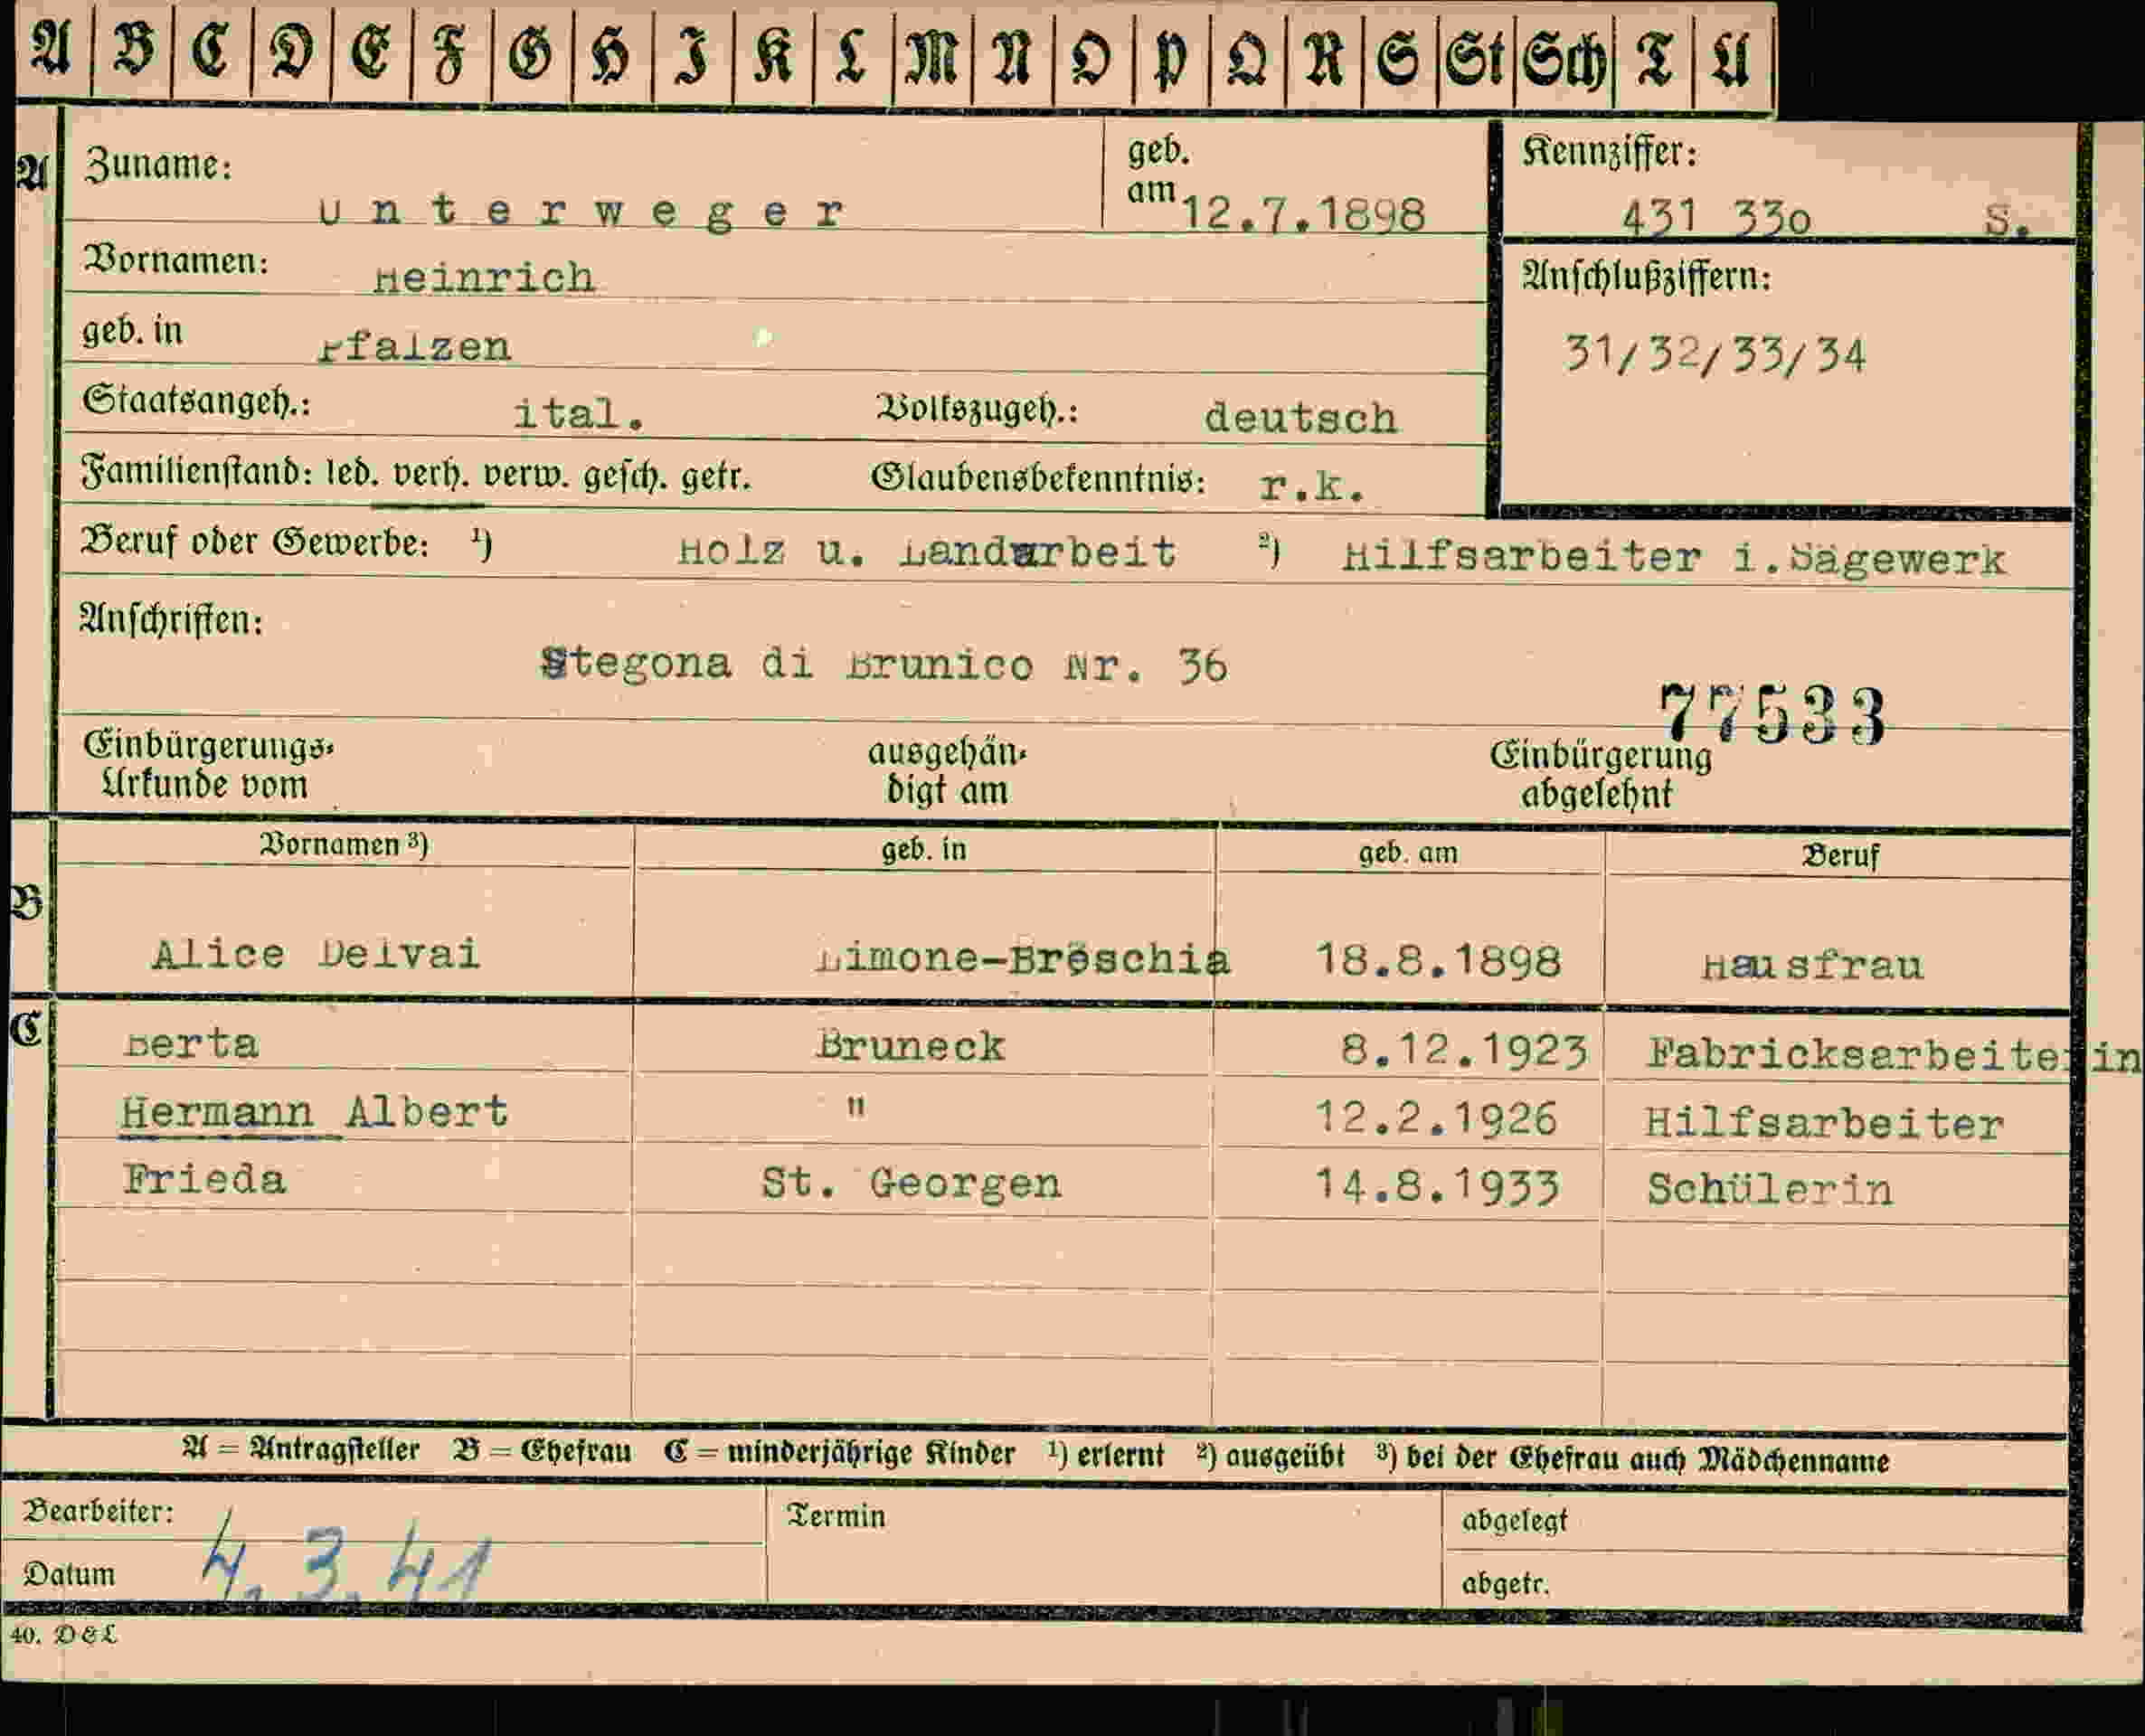 A B C D E F G H I K L M N O P Q R S St Sch T U
A
Zuname: Unterweger geb. am 12.7.1898 Kennziffer: 431 33o S.
Vornamen: Heinrich Anschlußziffern:
geb. in Pfalzen 31/32/33/34
Staatsangeh.: ital. Volkszugeh.: deutsch
Familienstand: led. verh. verw. gesch. getr. Glaubensbekenntnis: r.k.
Beruf oder Gewerbe: ¹) Holz u. Landarbeit ²) Hilfsarbeiter i.Sägewerk
Anschriften:
Stegona di Brunico Nr. 36
77533
Einbürgerungs- ausgehän- Einbürgerung
Urkunde vom digt am abgelehnt
Vornamen ³) geb. in geb. am Beruf
B
Alice Delvai Limone-Breschia 18.8.1898 Hausfrau
C
Berta Bruneck 8.12.1923 Fabricksarbeiterin
Hermann Albert " 12.2.1926 Hilfsarbeiter
Frieda St. Georgen 14.8.1933 Schülerin
A = Antragsteller B = Ehefrau C = minderjährige Kinder ¹) erlernt ²) ausgeübt ³) bei der Ehefrau auch Mädchenname
Bearbeiter: Termin abgelegt
Datum 4.3.41 abgetr.
40. D&L